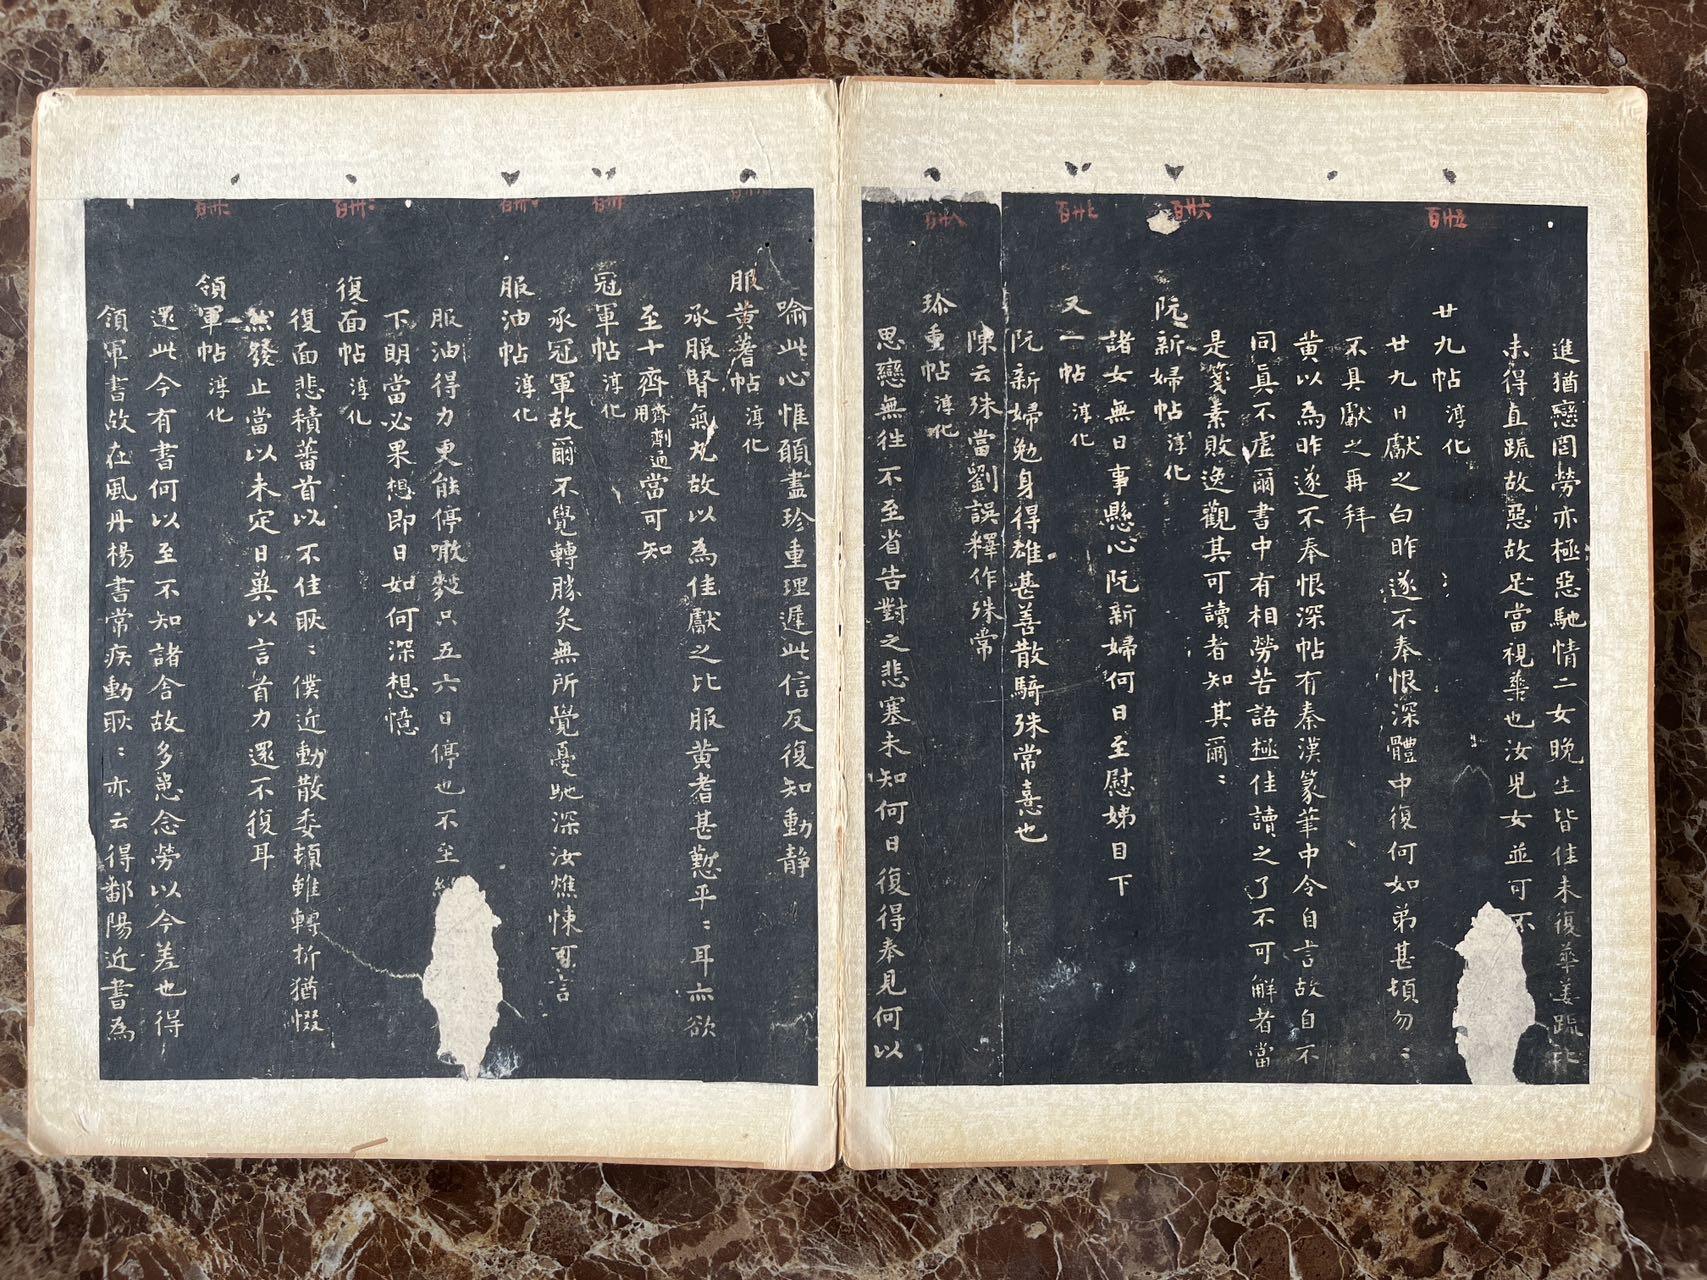 百廿五
百廿六
百廿七
百廿八
進猶戀罔勞亦極惡馳情二女晚生皆佳未復華姜疏比
未得直疏故惡故足當視華也汝兒女並可不
廿九帖 淳化
廿九日獻之白昨遂不奉恨深體中復何如弟甚頓勿:
不具獻之再拜
黃以為昨遂不奉恨深帖有秦漢篆筆中令自言故自不
同真不虛爾書中有相勞苦語極佳讀之了不可解者當
是箋素敗逸觀其可讀者知其爾:
阮新婦帖 淳化
諸女無日事懸心阮新婦何日至慰姊目下
又一帖 淳化
阮新婦勉身得雄甚善散騎殊常憙也
陳云殊當劉誤釋作殊常
珍重帖 淳化
思戀無往不至省告對之悲塞未知何日復得奉見何以
喻此心惟願盡珍重理遲此信反復知動靜
服黃蓍帖 淳化
承服腎氣丸故以為佳獻之比服黃耆甚懃平:耳亦欲
至十齊齊劑通用當可知
冠軍帖 淳化
承冠軍故爾不覺轉勝灸無所覺憂馳深汝燋悚可言
服油帖 淳化
服油得力更能停噉麪只五六日停也不至
下明當必果想即日如何深想憶
復面帖 淳化
復面悲積蕃首以不佳耿:僕近動散委頓雖轉折猶惙
然發止當以未定日冀以言首力還不復耳
領軍帖 淳化
還此今有書何以至不知諸舍故多患念勞以今差也得
領軍書故在風丹楊書常疾動耿:亦云得鄱陽近書為